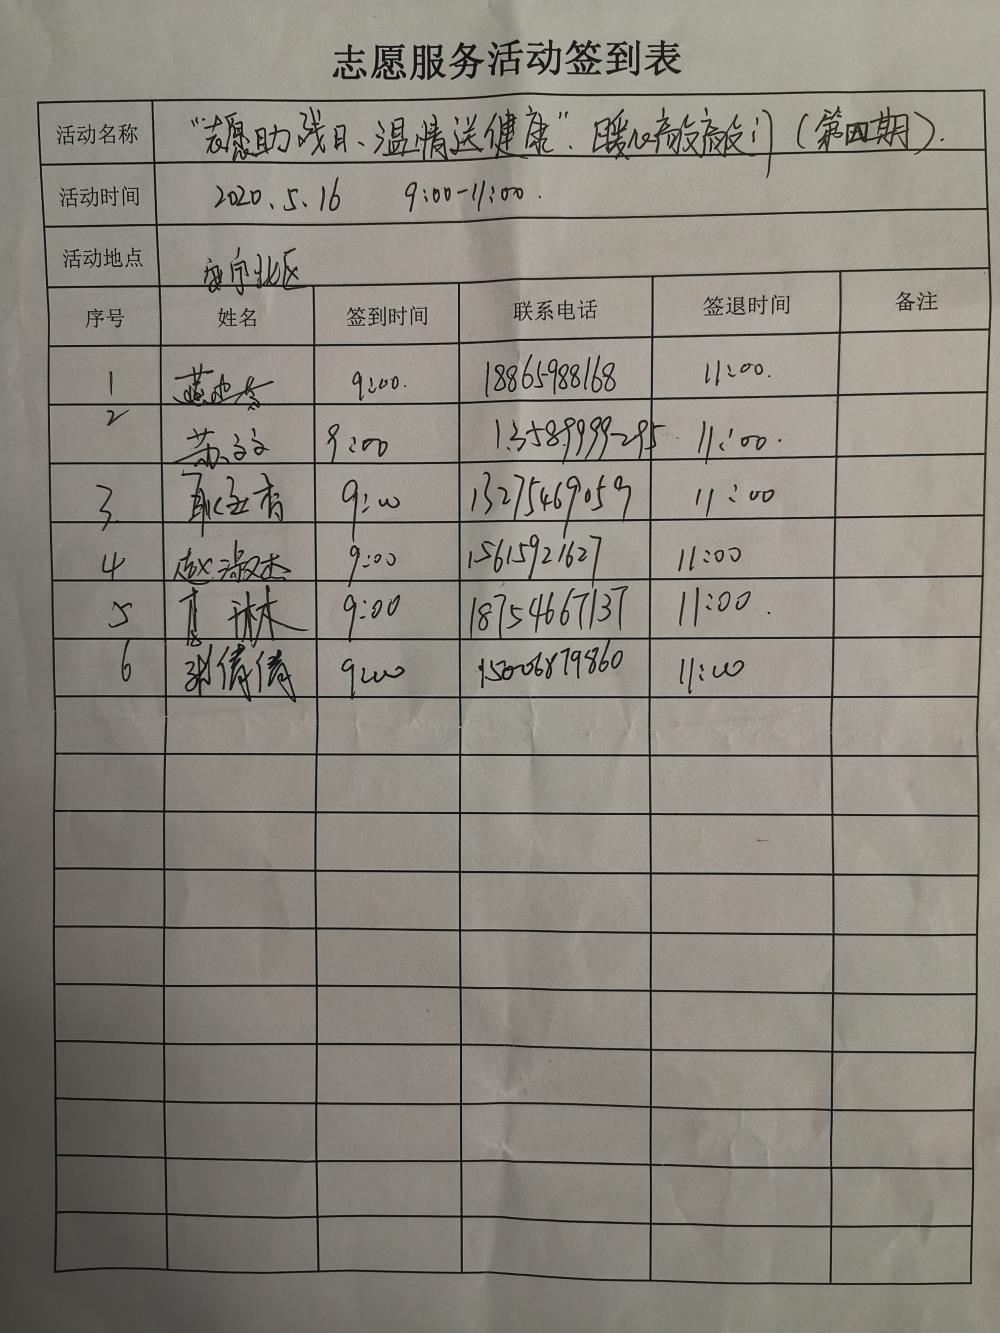 志愿服务活动签到表
活动名称 “志愿助残日、温情送健康”.暖心敲敲门(第四期).
活动时间 2020.5.16 9:00-11:00.
活动地点 安宁北区
序号 姓名 签到时间 联系电话 签退时间 备注
1 9:00. 18865988168 11:00.
2 苏文文 9:00 13589999295 11:00.
3. 耿玉香 9:00 13275469059 11:00
4 赵淑杰 9:00 15615921627 11:00
5 林 9:00 18754667137 11:00.
6 倩倩 9:00 15006879860 11:00